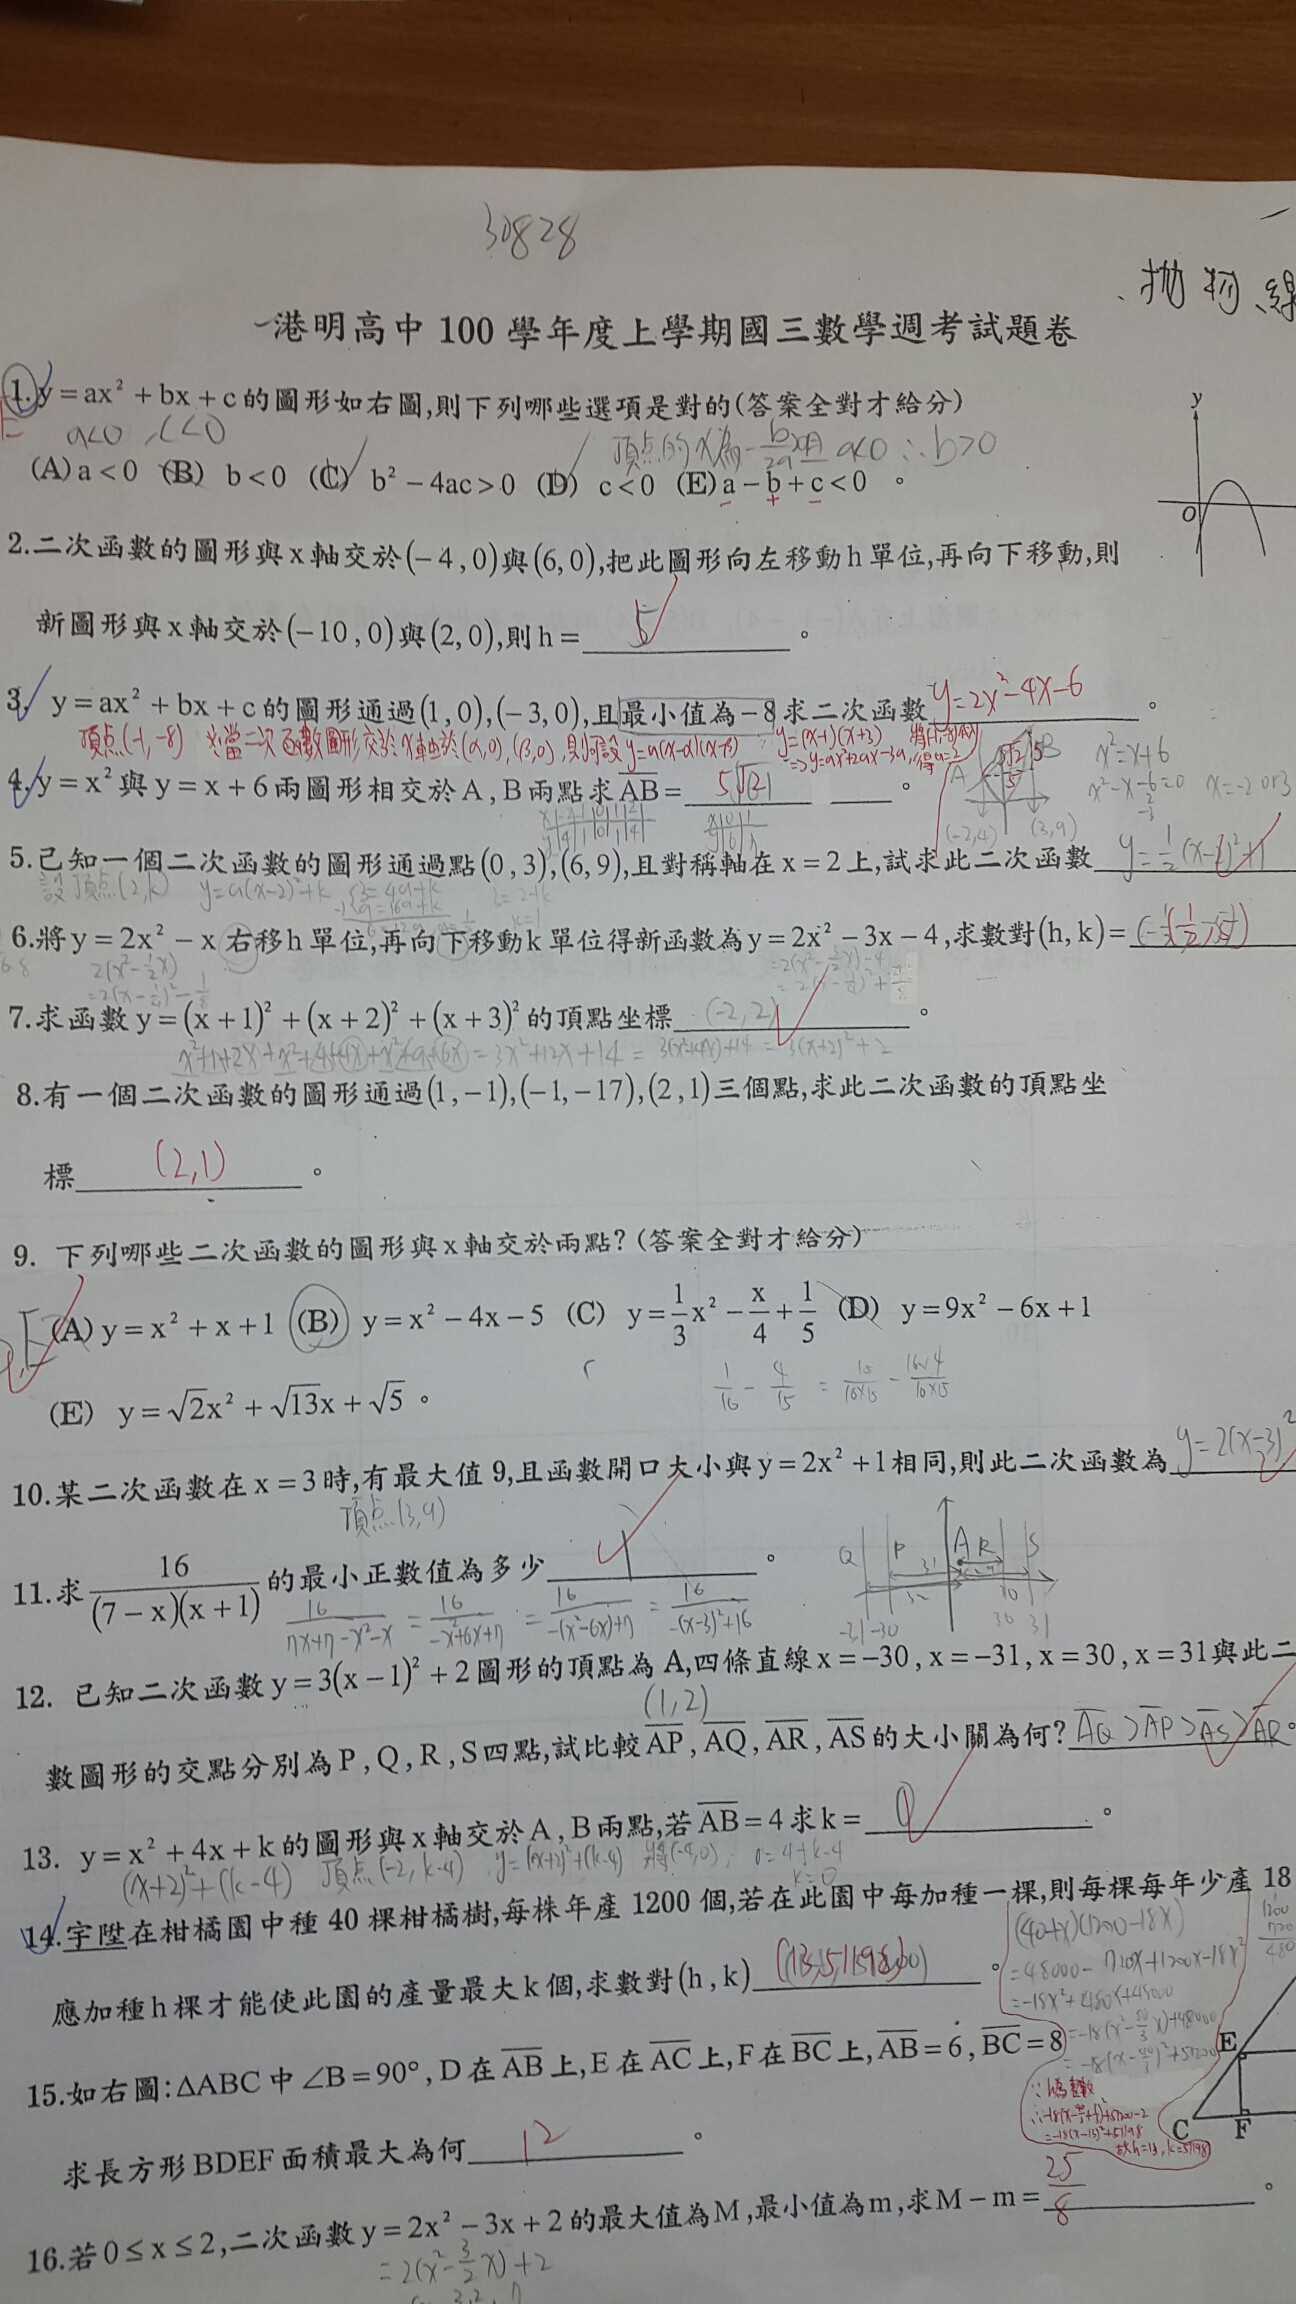 30828
拋物線
港明高中 100 學年度上學期國三數學週考試題卷
1. y = ax² + bx + c 的圖形如右圖,則下列哪些選項是對的(答案全對才給分)
a<0 , c<0
頂点的x為 -b/2a 又a<0 ∴b>0
(A) a < 0 (B) b < 0 (C) b² − 4ac > 0 (D) c < 0 (E) a − b + c < 0 。
y
O
2.二次函數的圖形與 x 軸交於 (−4 , 0) 與 (6 , 0),把此圖形向左移動 h 單位,再向下移動,則
新圖形與 x 軸交於 (−10 , 0) 與 (2 , 0),則 h = 5 。
3. y = ax² + bx + c 的圖形通過 (1 , 0),(−3 , 0),且最小值為 −8 求二次函數 y=2x²-4x-6 。
頂点(-1,-8)
4. y = x² 與 y = x + 6 兩圖形相交於 A , B 兩點求 AB = 5√2 。
x²=x+6
x²-x-6=0 x=-2 or 3
A B
(-2,4) (3,9)
5.已知一個二次函數的圖形通過點 (0 , 3),(6 , 9),且對稱軸在 x = 2 上,試求此二次函數 y=1/2(x-2)²+1
設頂点(2,k) y=a(x-2)²+k
6.將 y = 2x² − x 右移 h 單位,再向下移動 k 單位得新函數為 y = 2x² − 3x − 4 ,求數對 (h , k) =
2(x²-1/2x)
=2(x-1/4)²-1/8
7.求函數 y = (x + 1)² + (x + 2)² + (x + 3)² 的頂點坐標 (-2,2) 。
x²+1+2x+x²+4+4x+x²+9+6x=3x²+12x+14=3(x²+4x)+14=3(x+2)²+2
8.有一個二次函數的圖形通過 (1 , −1),(−1, −17),(2 , 1) 三個點,求此二次函數的頂點坐
標 (2,1) 。
9. 下列哪些二次函數的圖形與 x 軸交於兩點? (答案全對才給分)
(A) y = x² + x + 1 (B) y = x² − 4x − 5 (C) y = 1/3 x² − x/4 + 1/5 (D) y = 9x² − 6x + 1
1/16 - 4/15 = 15/16×15 - 16×4/16×15
(E) y = √2x² + √13x + √5 。
10.某二次函數在 x = 3 時,有最大值 9,且函數開口大小與 y = 2x² + 1 相同,則此二次函數為 y=2(x-3)²
頂点(3,9)
11.求 16/(7 − x)(x + 1) 的最小正數值為多少 1 。
16/7x+7-x²-x = 16/-x²+6x+7 = 16/-(x²-6x)+7 = 16/-(x-3)²+16
Q P A R S
-31 -30 30 31
12. 已知二次函數 y = 3(x − 1)² + 2 圖形的頂點為 A,四條直線 x = −30 , x = −31 , x = 30 , x = 31 與此二
(1,2)
數圖形的交點分別為 P , Q , R , S 四點,試比較 AP , AQ , AR , AS 的大小關為何? AQ>AP>AS>AR 。
13. y = x² + 4x + k 的圖形與 x 軸交於 A , B 兩點,若 AB = 4 求 k = 0 。
(x+2)²+(k-4) 頂点(-2,k-4) y=(x+2)²+(k-4) 將(-4,0) 0=4+k-4
k=0
14.宇陞在柑橘園中種 40 棵柑橘樹,每株年產 1200 個,若在此園中每加種一棵,則每棵每年少產 18
(40+x)(1200-18x)
1200
720
480
應加種 h 棵才能使此園的產量最大 k 個,求數對 (h , k) (13,51198) 。
=48000-720x+1200x-18x²
=-18x²+480x+48000
=-18(x²-80/3x)+48000
∵h為整數
=-18(x-13)²+51198
故h=13,k=51198
15.如右圖:ΔABC 中 ∠B = 90° , D 在 AB 上,E 在 AC 上,F 在 BC 上, AB = 6 , BC = 8
求長方形 BDEF 面積最大為何 12 。
E
C F
16.若 0 ≤ x ≤ 2,二次函數 y = 2x² − 3x + 2 的最大值為 M ,最小值為 m ,求 M − m = 25/8 。
=2(x²-3/2x)+2